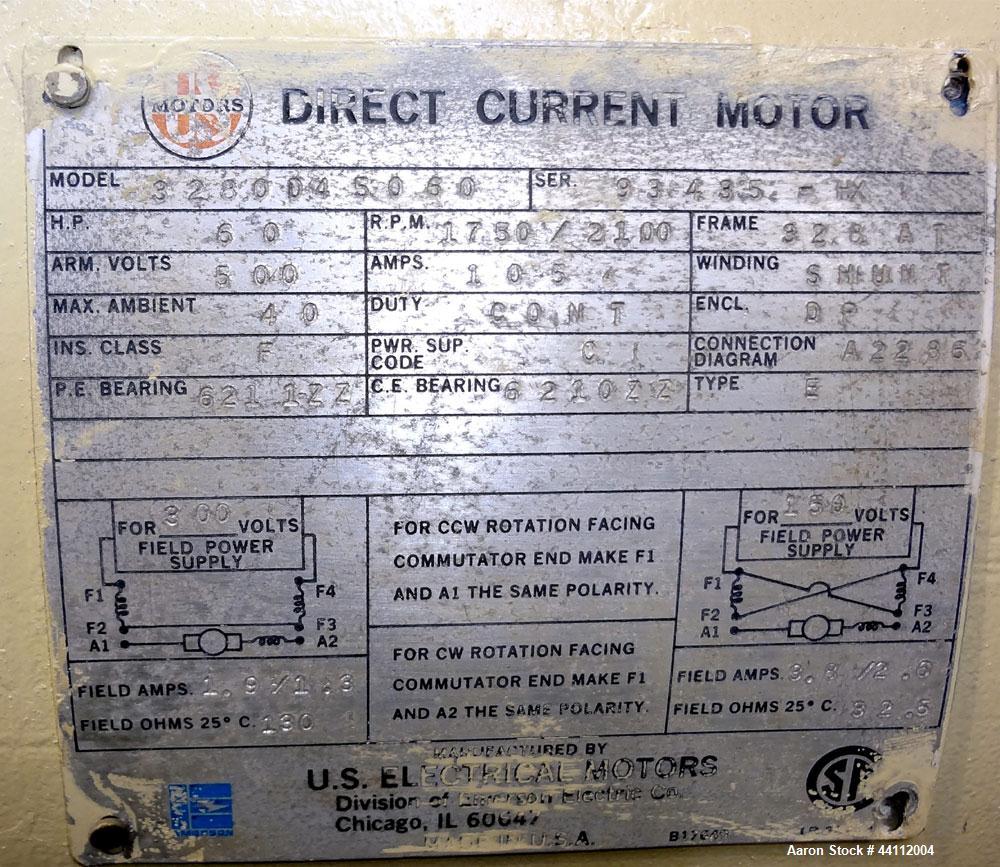 US
MOTORS
US
DIRECT CURRENT MOTOR
MODEL 3280045060 SER. 93435 - HX
H.P. 60 R.P.M. 1750/2100 FRAME 328 AT
ARM. VOLTS 500 AMPS. 105 WINDING SHUNT
MAX. AMBIENT 40 DUTY CONT ENCL. DP
INS. CLASS F PWR. SUP. CODE C CONNECTION DIAGRAM A2286
P.E. BEARING 6211ZZ C.E. BEARING 6210ZZ TYPE E
FOR 300 VOLTS
FIELD POWER
SUPPLY
F1 F4
F2 F3
A1 A2
FIELD AMPS. 1.9/1.3
FIELD OHMS 25° C. 130
FOR CCW ROTATION FACING
COMMUTATOR END MAKE F1
AND A1 THE SAME POLARITY.
FOR CW ROTATION FACING
COMMUTATOR END MAKE F1
AND A2 THE SAME POLARITY.
FOR 150 VOLTS
FIELD POWER
SUPPLY
F1 F4
F2 F3
A1 A2
FIELD AMPS. 3.8/2.6
FIELD OHMS 25° C. 32.5
MANUFACTURED BY
U.S. ELECTRICAL MOTORS
Division of Emerson Electric Co.
Chicago, IL 60647
MADE IN U.S.A.
EMERSON
Aaron Stock # 44112004